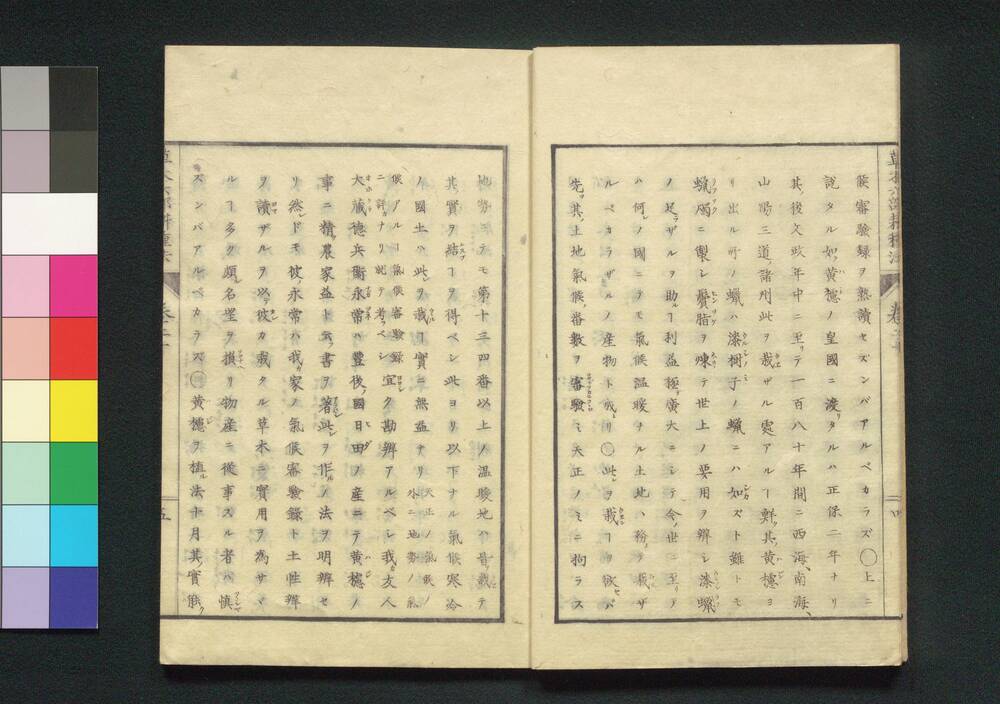 候審驗録ヲ熟讀セズンバアルベカラズ〇上ニ
説タル如黄櫨ノ皇國ニ渡リタルハ正保二年ナリ
其後文政年中ニ至リテ一百八十年間ニ西海、南海、
山陽三道、諸州此ヲ栽ザル處アルヿ鮮其黄櫨ヨ
リ出ル所ノ蠟ハ漆樹子ノ蠟ニハ如ズト雖トモ
蠟燭ニ製シ鬢脂ヲ煉テ世上ノ要用ヲ辨シ漆蠟
ノ足ラザルヲ助ルヿ利益極廣大ニシテ今ノ世ニ至リテ
ハ何レノ國ニテモ氣候温暖ナル土地ハ栽ザ
ルベカラザルノ産物ト成レリ〇此ヲ栽ヿヲ欲セバ
先ツ其土地氣候ノ番數ヲ審驗ミ天正ノミニ拘ラス
地勢ニテモ第十三四番以上ノ温暖地ハ皆栽テ
其實ヲ結ヿヲ得ベシ此ヨリ以下ナル氣候寒冷
ノ國土ハ此ヲ栽ヿ實ニ無益ナリ天正ノ氣候ノ
外ニ地勢ノ氣
候アルヿ氣候審驗録
ニ詳カナリ就テ考フベシ宜ク勘辨アルベシ我カ友人
大藏德兵衛永常ハ豊後國日田ノ産ニテ黄櫨ノ
事ニ精農家益ト云フ書ヲ著シ此ヲ作ルノ法ヲ明辨セ
リ然レドモ彼永常ハ我カ家ノ氣候審驗録ト土性辨
ヲ讀ザルヲ以彼カ栽タル草木ニ實用ヲ為サヾ
ルヿ多ク頗ル名望ヲ損リ物産ニ從事スル者ハ慎
ズンバアルベカラズ〇黄櫨ヲ植ル法十月其實能ク
巻二
五